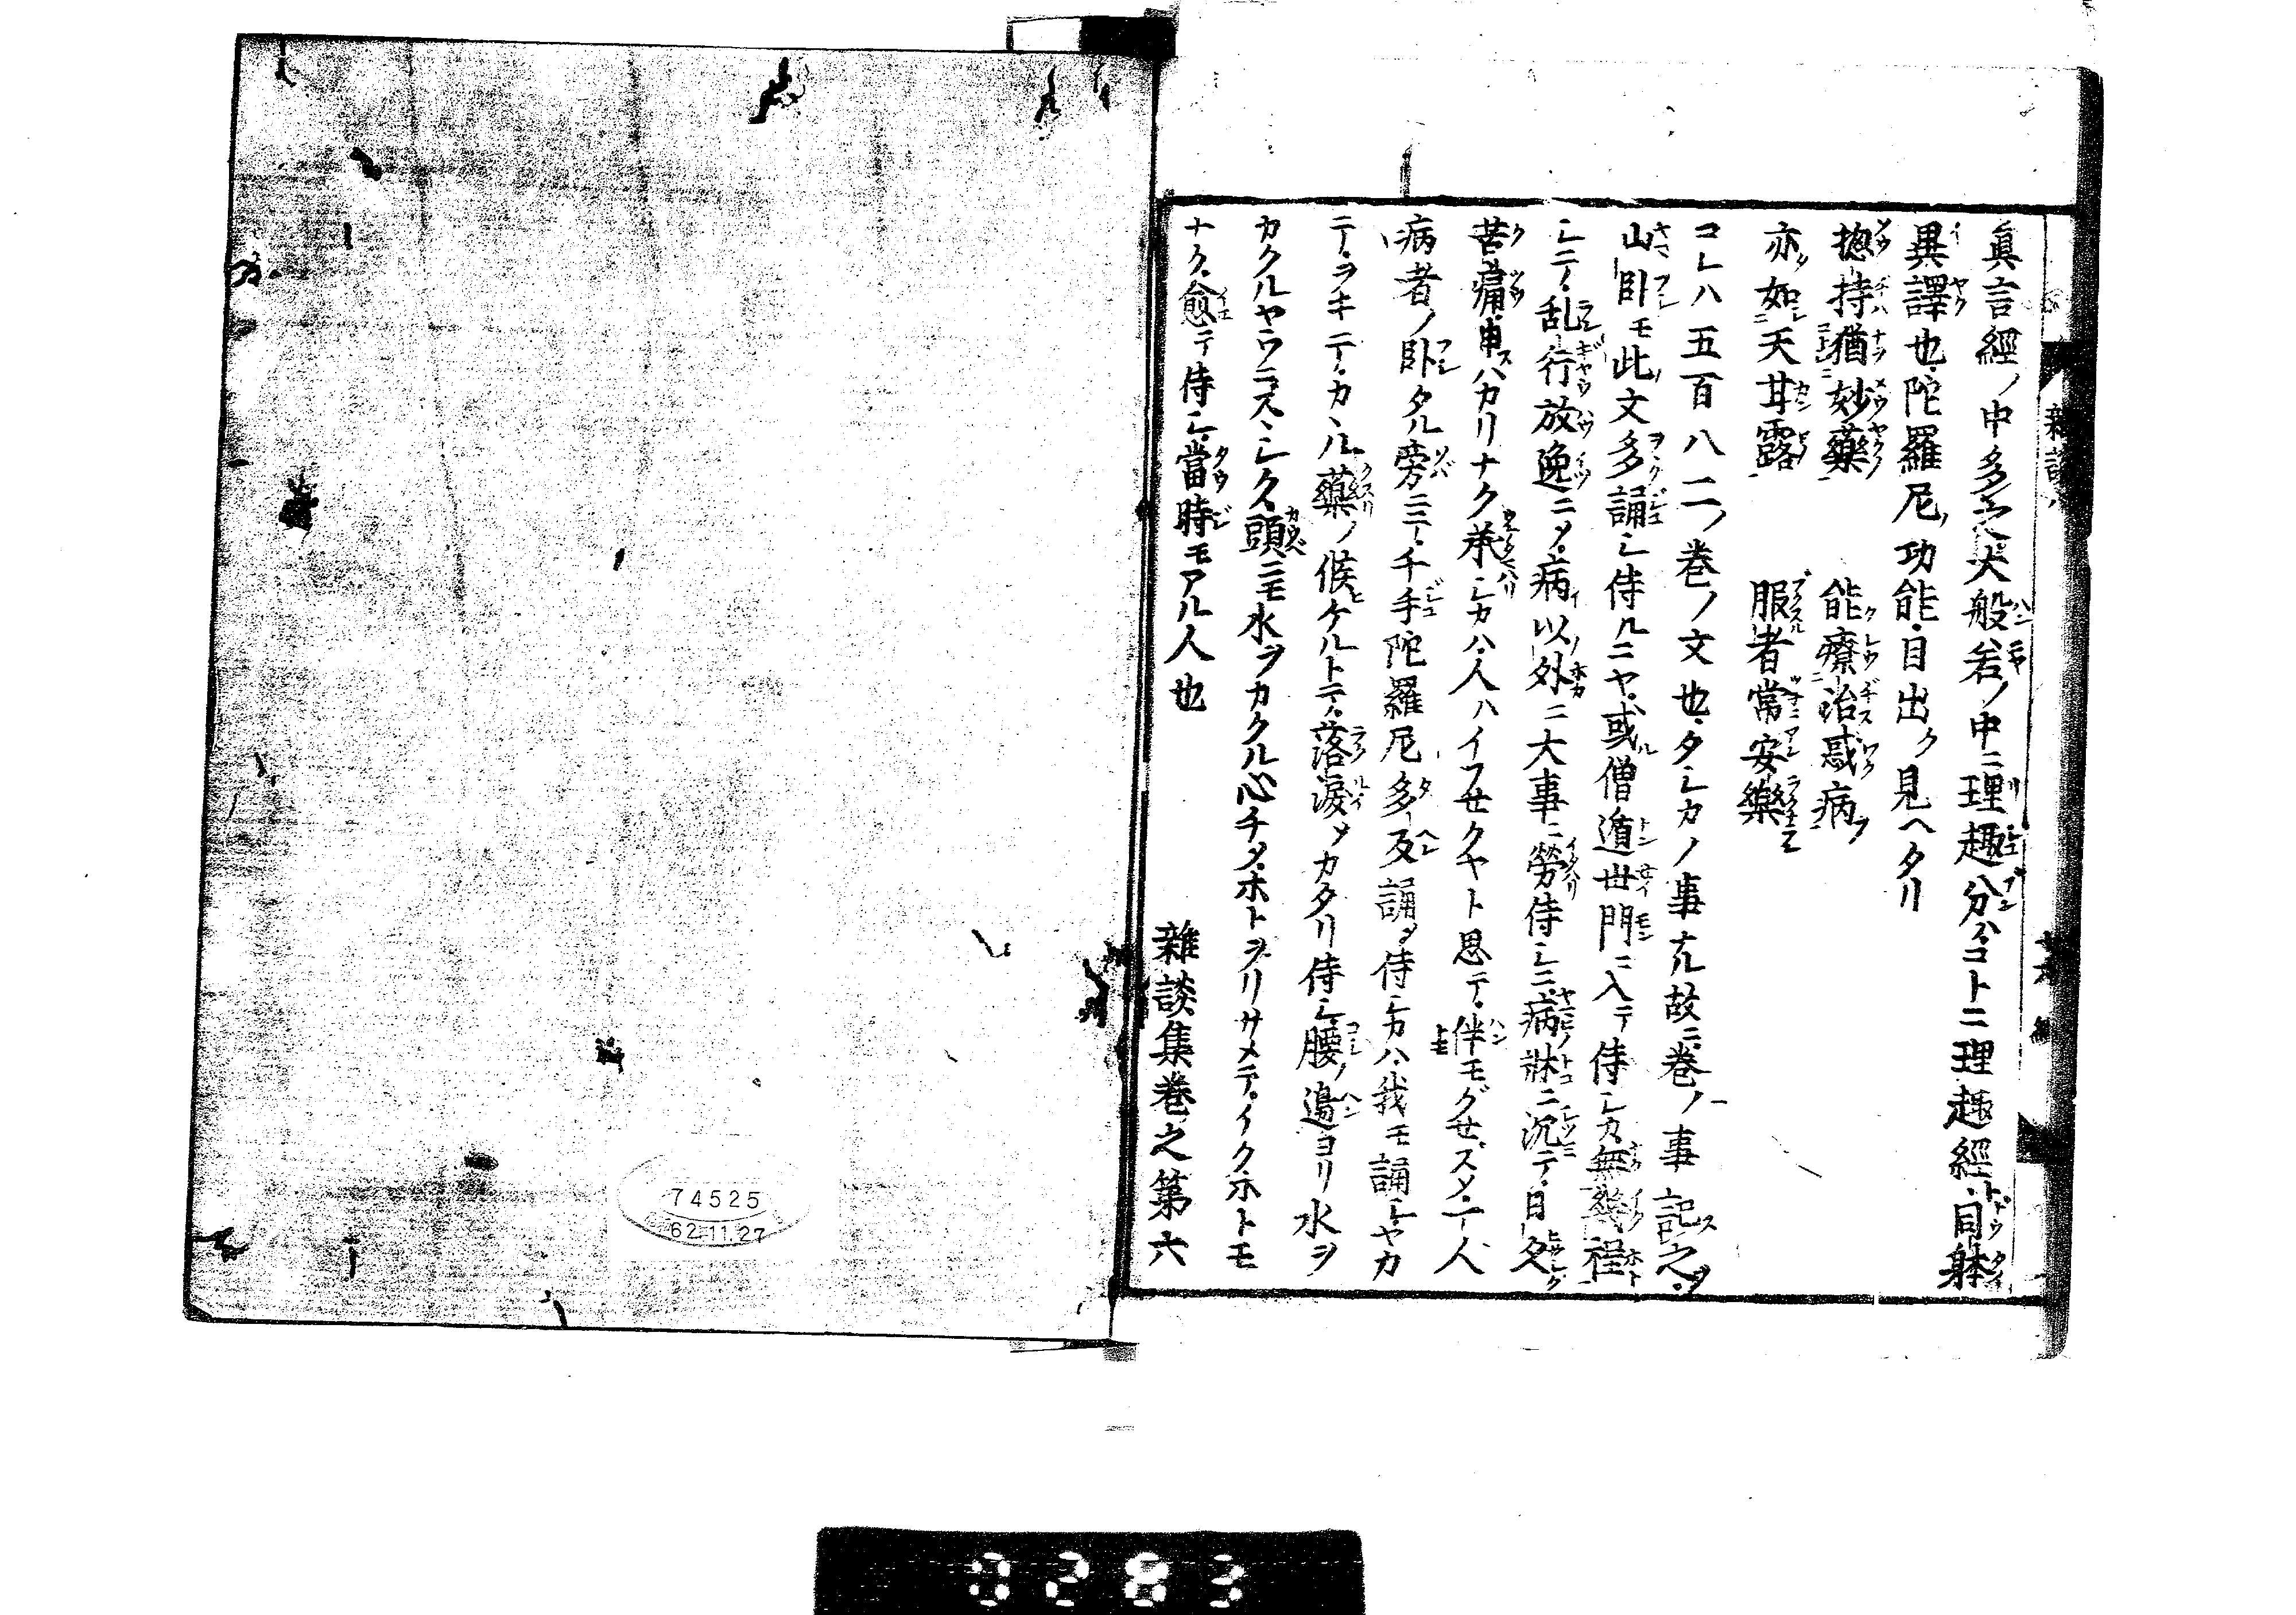 眞言經ノ中多之大般若ノ中ニ理趣分ハコトニ理趣經同躰
異譯也陀羅尼ノ功能目出ク見ヘタリ
惣持猶妙藥　能療治惑病
亦如天甘露　服者常安樂
コレハ五百八二ノ卷ノ文也タシカノ事ナル故ニ卷ノ事記之
山臥モ此文多誦シ侍ルニヤ或僧遁世門ニ入テ侍シカ無幾程
シテ乱行放逸ニメ病以外ニ大事ニ勞侍シニ病牀ニ沉テ日久
苦痛申ハカリナク承シカハ人ハイフセクヤト思テ伴モグセスメ一人
病者ノ臥タル旁ニテ千手陀羅尼多反誦タ侍シカハ我モ誦シヤカ
テヲキテカヽル藥ノ候ケルトテ落涙メカタリ侍シ腰ノ邉ヨリ水ヲ
カクルヤウニスヽシク頭ニモ水ヲカクル心チメホトヲリサメテイクホトモ
ナク愈テ侍シ當時モアル人也
雜談集卷之第六
74525
62.11.27
0283